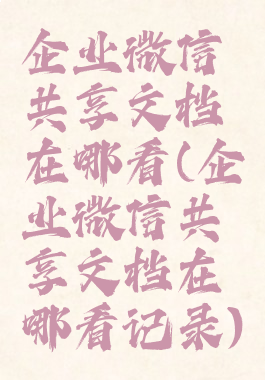 企业微信
共享文档
在哪看(企
业微信共
享文档在
哪看记录)